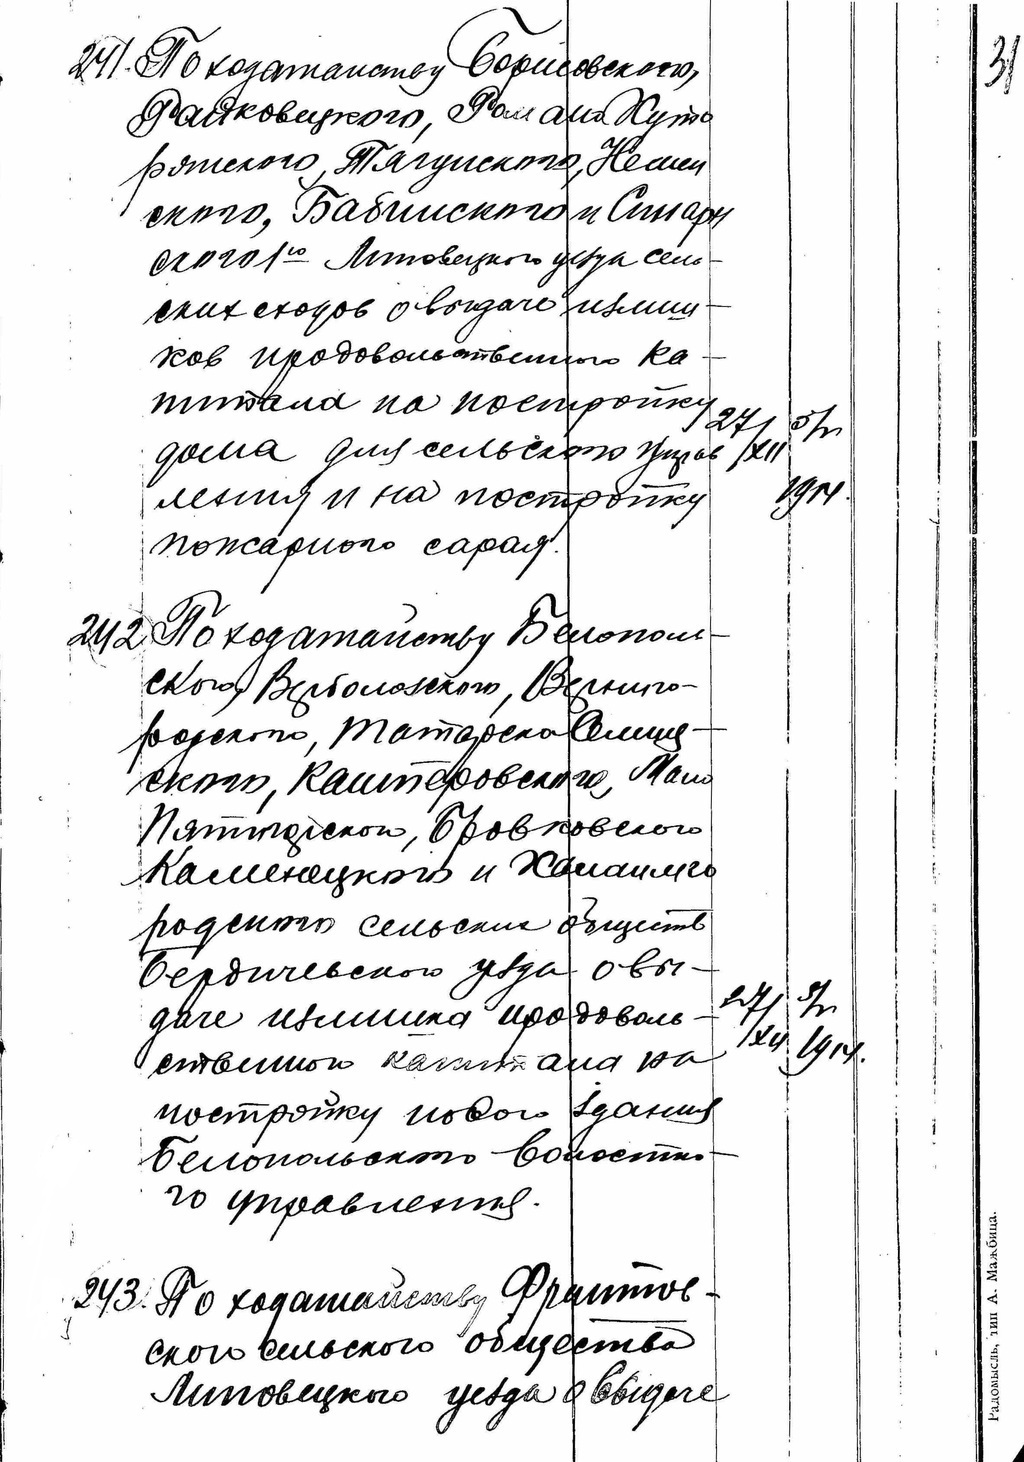 31
241. По ходатайству Борисовского,
Райковецкого, Роман Хуто
рянского, Тягунского, Немен
ского, Бабинского и Синарн
ского 1го Липовецкого уезда сель-
ских сходов о выдаче излиш-
ков продовольственного ка-
питала на постройку
дома для сельского управ
ления и на постройку
пожарного сарая.
27/XII 5/IV
1914.
242 По ходатайству Белополь-
ского, Верболозского, Верниго-
родского, Татарско Селищ-
ского, Каштеровского, Мало
Пятигорского, Бровковского
Каменецкого и Халаимго
родского сельских обществ
Бердичевского уезда о вы-
даче излишка продоволь-
ственного капитала на
постройку нового здания
Белопольского волостно-
го управления.
27/XII 5/IV
1914.
243. По ходатайству Фронтов-
ского сельского общества
Липовецкого уезда о выдаче
Радомысль, тип А. Мажбица.